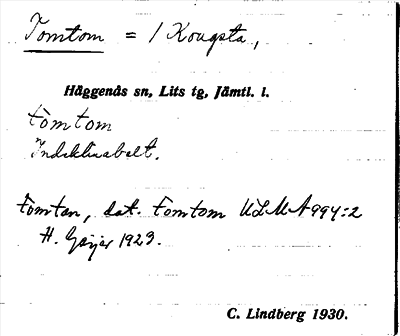 Tomtom = / Kougsta,
Häggenås sn, Lits tg, Jämtl. l.
tòmtom
Indeklinabelt.
tomtan, dat. tomtom ULMA 994:2
H. Geijer 1923.
C. Lindberg 1930.